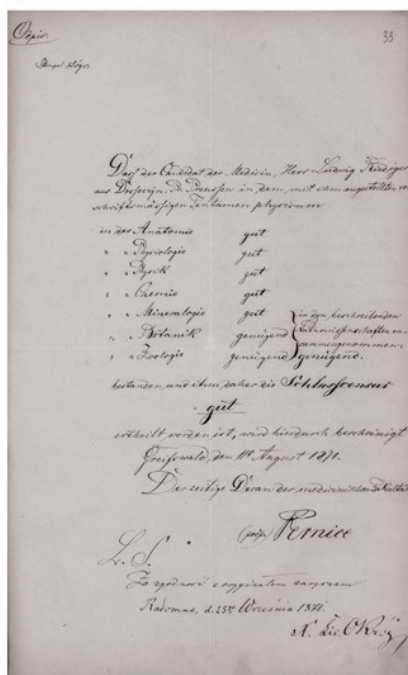 Copia.
33.
Dass der Candidat der Medicin, Herr Ludwig
aus Pr. Preussen in dem, mit ihm angestellten vor
schriftsmässigen Tentamen physicum
in der Anatomie gut
" " Physiologie gut
" " Physik gut
" " Chemie gut
" " Mineralogie gut
" " Botanik genügend
" " Zoologie genügend
in den beschreibenden
Naturwissenschaften zu-
sammengenommen:
genügend.
bestanden und ihm daher die Schlusscensur
gut
ertheilt worden ist, wird hierdurch bescheinigt
Greifswald, den August 1871.
Der zeitige Decan der medicinischen Fakultät
Pernice
L. S.
Za zgodność z oryginałem zaręczam
Radomno, d. 25go Września 1871.
X.